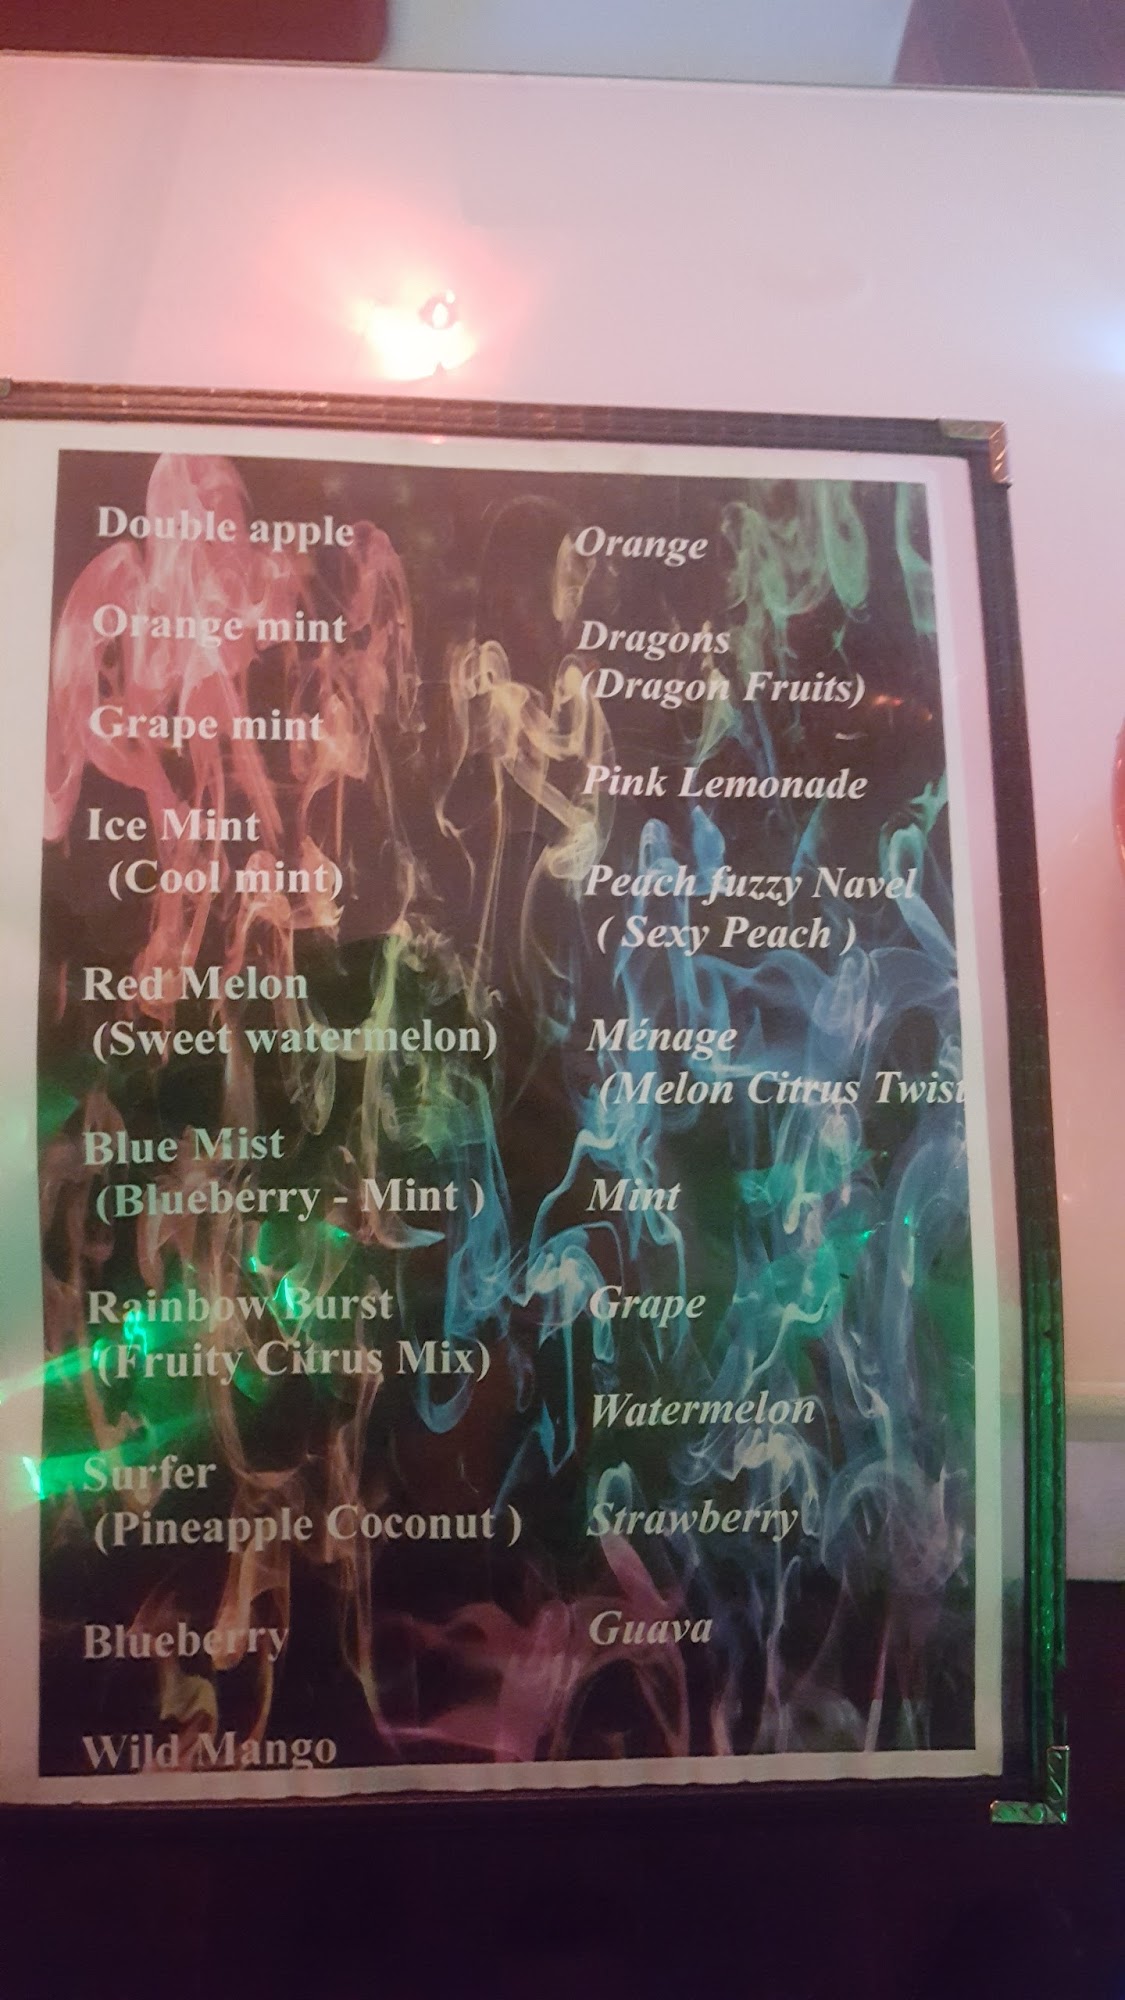 Double apple
Orange mint
Grape mint
Ice Mint
(Cool mint)
Red Melon
(Sweet watermelon)
Blue Mist
(Blueberry - Mint )
Rainbow Burst
(Fruity Citrus Mix)
Surfer
(Pineapple Coconut )
Blueberry
Wild Mango
Orange
Dragons
(Dragon Fruits)
Pink Lemonade
Peach fuzzy Navel
( Sexy Peach )
Ménage
(Melon Citrus Twist
Mint
Grape
Watermelon
Strawberry
Guava